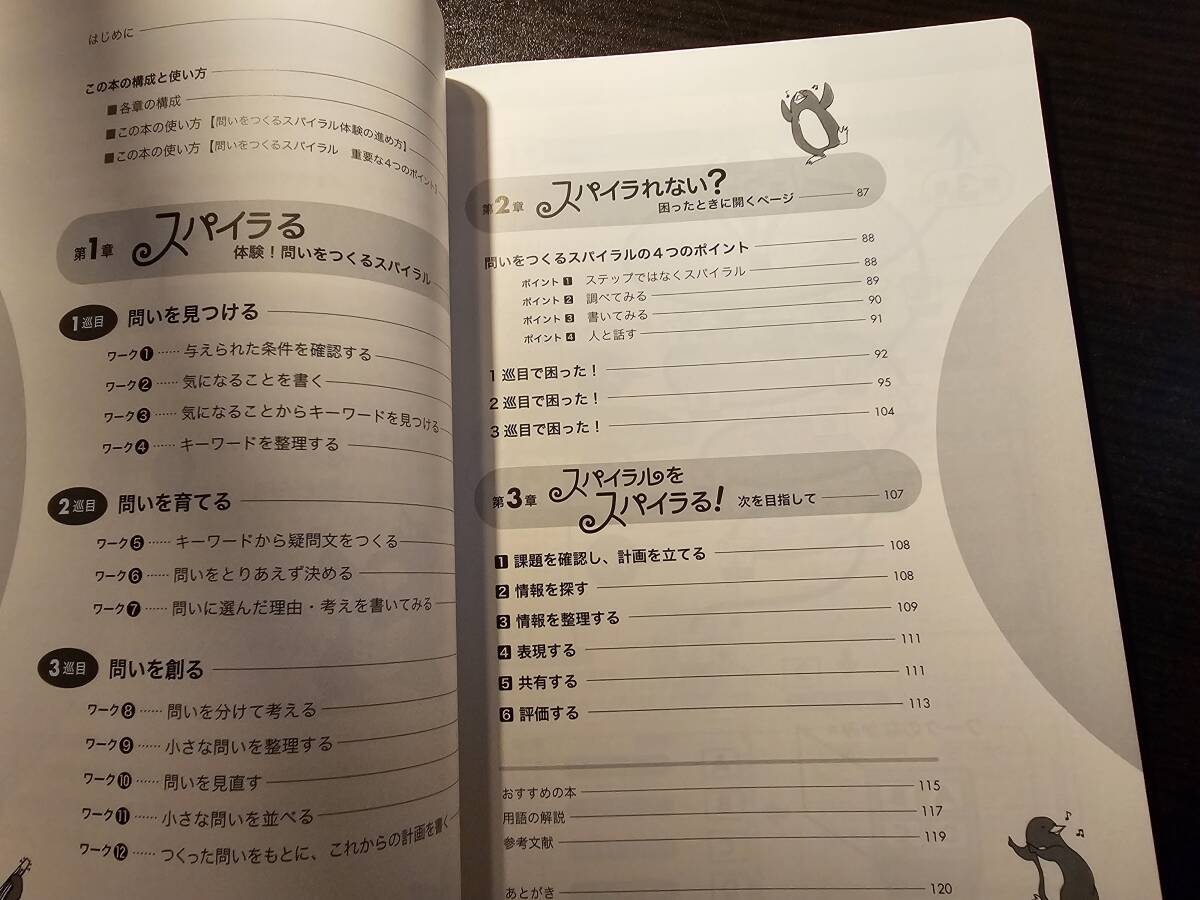 はじめに
この本の構成と使い方
■各章の構成
■この本の使い方【問いをつくるスパイラル体験の進め方】
■この本の使い方【問いをつくるスパイラル 重要な4つのポイント】
第1章 スパイラる
体験！問いをつくるスパイラル
1巡目 問いを見つける
ワーク❶ …… 与えられた条件を確認する
ワーク❷ …… 気になることを書く
ワーク❸ …… 気になることからキーワードを見つける
ワーク❹ …… キーワードを整理する
2巡目 問いを育てる
ワーク❺ …… キーワードから疑問文をつくる
ワーク❻ …… 問いをとりあえず決める
ワーク❼ …… 問いに選んだ理由・考えを書いてみる
3巡目 問いを創る
ワーク❽ …… 問いを分けて考える
ワーク❾ …… 小さな問いを整理する
ワーク❿ …… 問いを見直す
ワーク⓫ …… 小さな問いを並べる
ワーク⓬ …… つくった問いをもとに、これからの計画を書く
第2章 スパイラれない？
困ったときに開くページ 87
問いをつくるスパイラルの4つのポイント 88
ポイント 1 ステップではなくスパイラル 88
ポイント 2 調べてみる 89
ポイント 3 書いてみる 90
ポイント 4 人と話す 91
1巡目で困った！ 92
2巡目で困った！ 95
3巡目で困った！ 104
第3章 スパイラルを
スパイラる！ 次を目指して 107
1 課題を確認し、計画を立てる 108
2 情報を探す 108
3 情報を整理する 109
4 表現する 111
5 共有する 111
6 評価する 113
おすすめの本 115
用語の解説 117
参考文献 119
あとがき 120